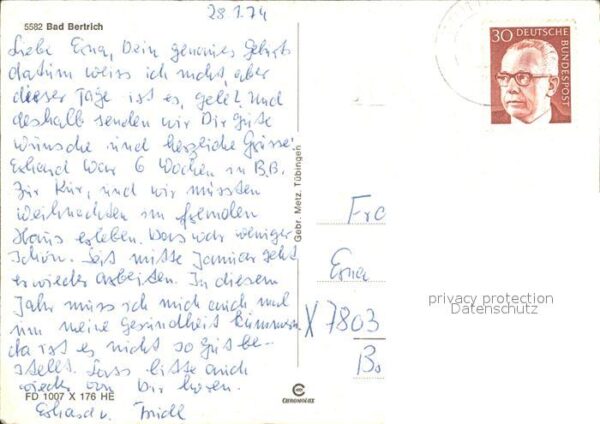 28.1.74
5582 Bad Bertrich
Liebe Erna, Dein genaues Geburts
datum weiss ich nicht, aber
dieser Tage ist es, gelt! Und
deshalb senden wir Dir gute
wünsche und herzliche Grüsse.
Erhard war 6 Wochen in B.B.
zur Kur, und wir mussten
Weihnachten im fremden
Haus erleben. Das war weniger
schön. Seit mitte Januar geht
er wieder arbeiten. In diesem
Jahr muss ich mich auch mal
um meine Gesundheit kümmern
da ist es nicht so gut be-
stellt. Lass bitte auch
wieder von Dir hören.
FD 1007 X 176 HE
Erhard u. Friedl
Gebr. Metz, Tübingen
CHROMOLUX
30 DEUTSCHE
BUNDESPOST
Fra
Erna
X 7803
privacy protection
Datenschutz